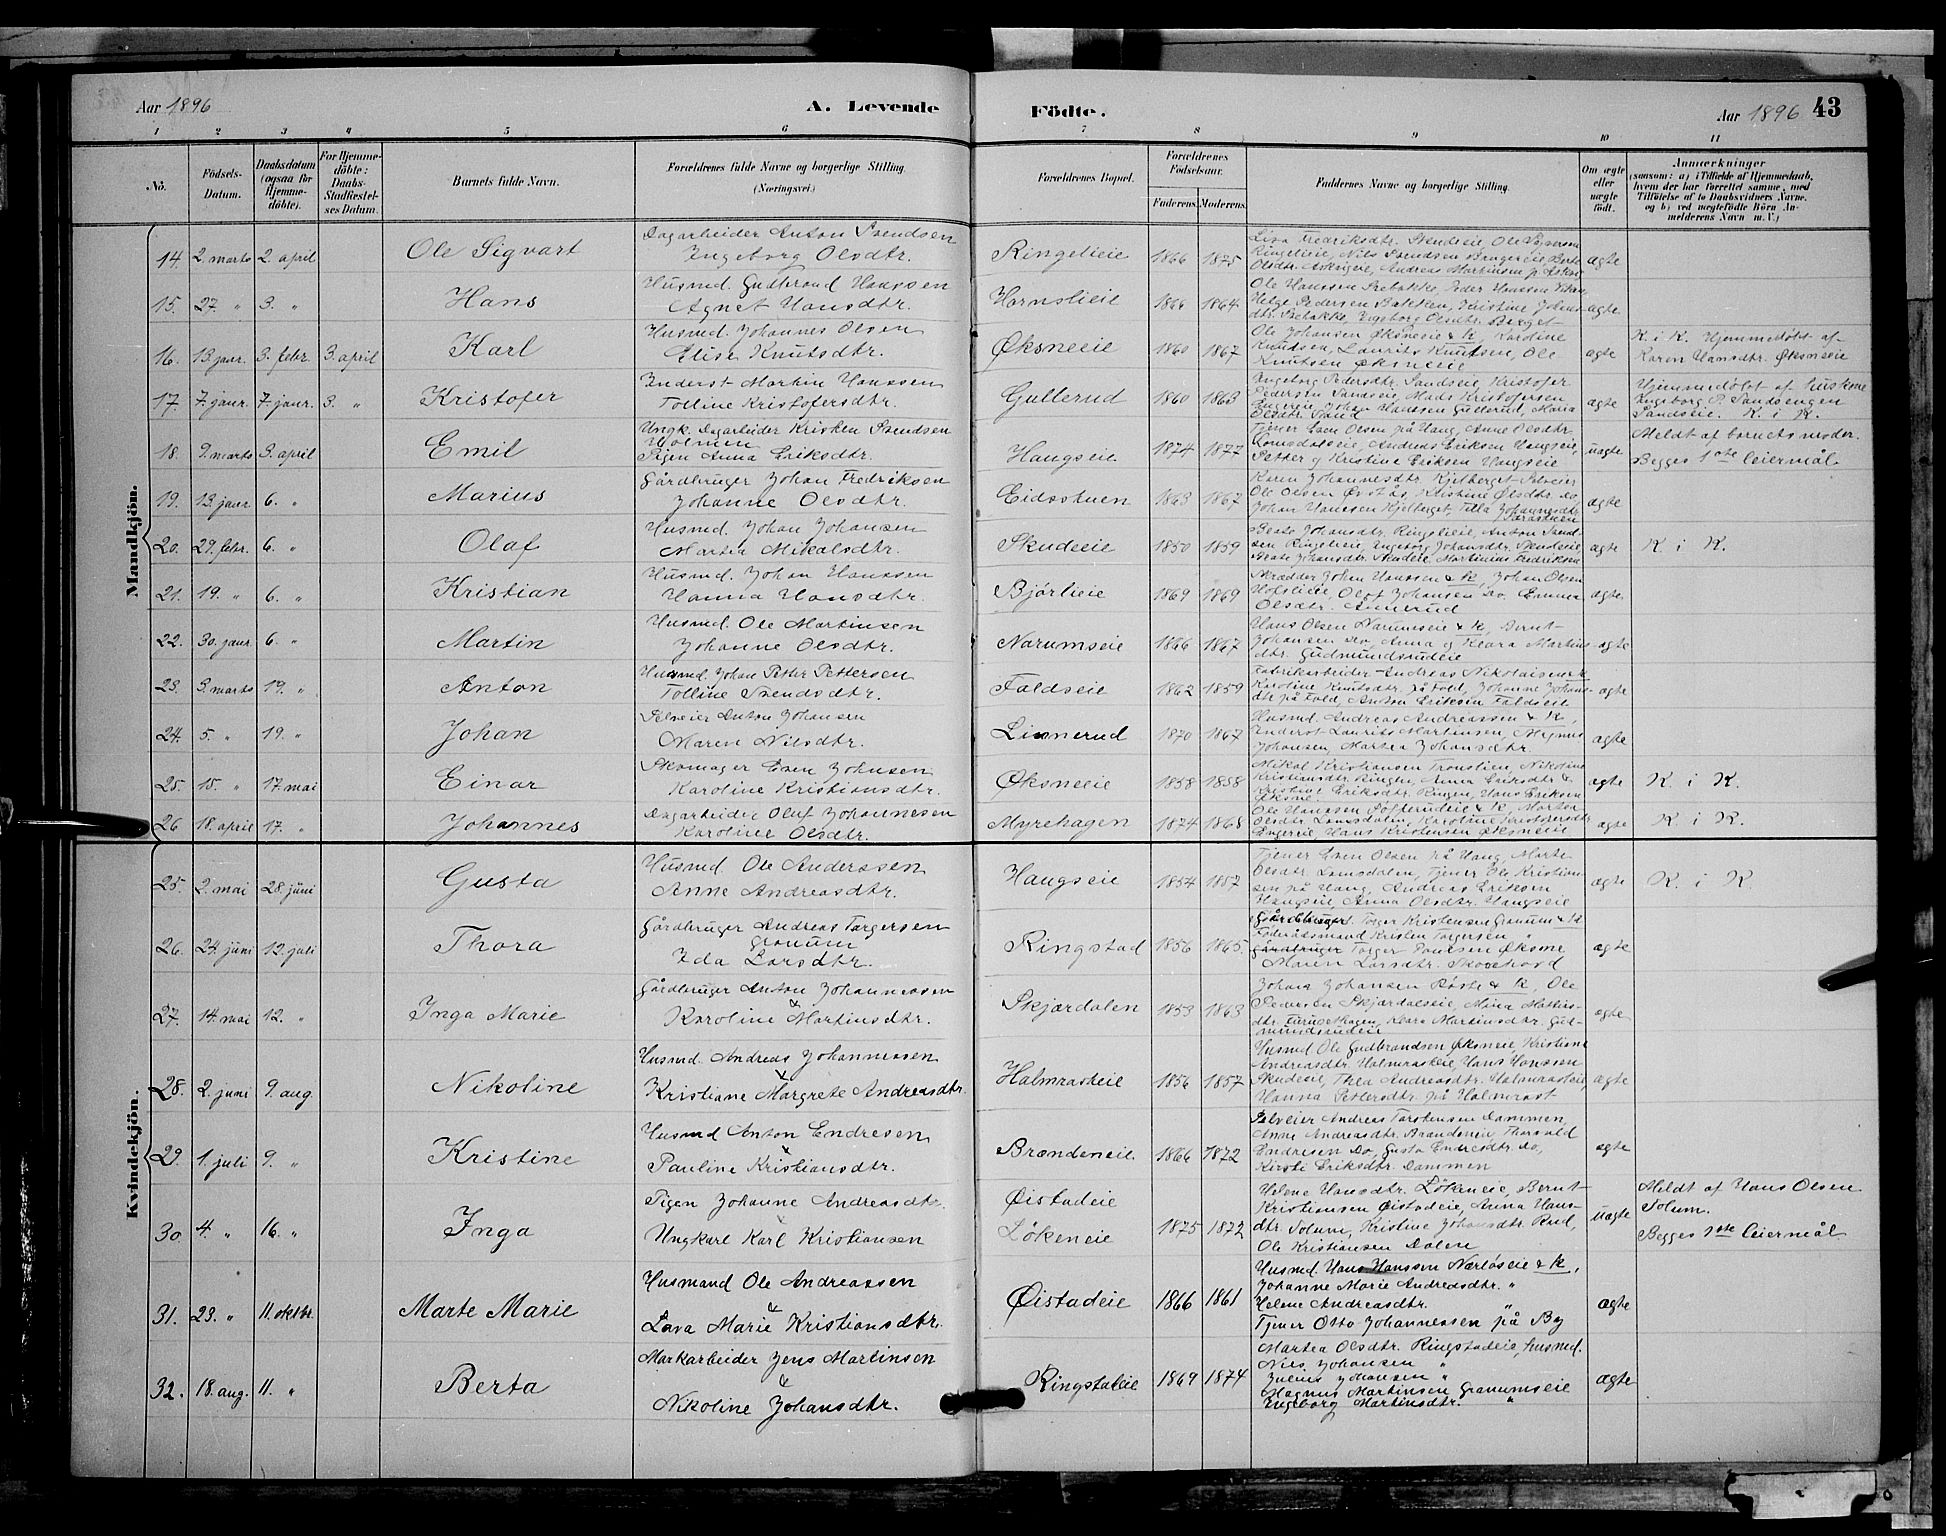 Aar 1896 A. Levende Födte. Aar 1896 43
1 2 3 4 5 6 7 8 9 10 11
No. Födsels-Datum. Daabsdatum (ogsaa for Hjemme-döbte). For Hjemme-döbte: Daabs-Stadfæstel-ses Datum. Barnets fulde Navn. Forældrenes fulde Navne og borgerlige Stilling (Næringsvei.) Forældrenes Bopæl. Forældrenes Födselsaar. Faderens. Moderens. Faddernes Navne og borgerlige Stilling. Om ægte eller uægte födt. Anmærkninger (saasom: a) i Tilfælde af Hjemmedaab, hvem der har forrettet samme, med Tilföielse af to Daabsvidners Navne, og b) ved uægtefödte Börn An-melderens Navn m. V.)
Mandkjön.
14. 2. marts 2. april Ole Sigvart Dagarbeider Anton Svendsen
Ingeborg Olsdtr. Ringelieie 1866 1875 ægte
15. 27 " 3. " Hans Husmd. Gudbrand Hanssen
Agnet Hansdtr. Hornslieie 1866 1864 ægte
16. 13. janr. 3. febr. 3. april Karl Husmd. Johannes Olsen
Elise Knutsdtr. Øksneeie 1860 1867 Ole Johansen Øksneeie & K, Karoline
Knudsen, Laurits Knutsen, Ole
Knutsen Øksneeie ægte K. i K. Hjemmedøbt af
Karen Hansdtr. Øksneeie
17. 7. janr. 7. janr. 3. " Kristofer Inderst Martin Hanssen
Tolline Kristofersdtr. Gullerud 1860 1863 Ingeborg Pedersdtr. Sandseie, Kristofer
Pedersen Sandseie, Mads Kristofersen
Engereie, Johan Hanssen Gullerud, Maria
Olsdtr. Sand ægte Hjemmedøbt af huskone
Ingeborg P. Sandsengen
Sandseie. K. i K.
18. 9. marts 3. april Emil Ungk. Dagarbeider Kristen Svendsen
Holmen
Pigen Anna Eriksdtr. Haugseie 1874 1877 Tjener Even Olsen på Haug, Anne Olsdtr.
Lomsdalseie, Andreas Eriksen Haugseie,
Petter og Kristine Eriksen Haugseie uægte Meldt af barnets moder.
Begges 1ste leiermål.
19. 13. janr. 6. " Marius Gårdbruger Johan Fredriksen
Johanne Olsdtr. Eidsstuen 1863 1867 Karen Johannesdtr Kjelberget Selveier
Johan Hanssen Kjelberget, Tilla Johannesdtr. ægte
20. 29. febr. 6. " Olaf Husmd. Johan Johansen
Martea Mikalsdtr. Skudeeie 1850 1859 ægte K i K.
21. 19. " 6. " Kristian Husmd. Johan Hanssen
Hanna Hansdtr. Bjørlieie 1869 1869 Skrædder Johan Hanssen & K, Johan Olsen
Hofslieie, Olof Johansen Do, Emma
Olsdtr. Annerud ægte
22. 30. janr. 6. " Martin Husmd. Ole Martinsen
Johanne Olsdtr. Narumseie 1866 1867 Hans Olsen Narumseie & K, Bernt
Johansen Do, Anna og Klara Martins-
dtr. Gudmundsrudeie ægte
23. 3. marts 19. " Anton Husmd Johan Petter Pettersen
Tolline Svendsdtr. Faldseie 1862 1859 Fabrikarbeider Andreas Nikolaisen &
Karoline Knutsdtr. på Fald, Johanne Johans-
dtr på Fald, Anton Eriksen Faldseie ægte
24. 5. " 19. " Johan Selveier Anton Johansen
Maren Nilsdtr. Linnerud 1870 1867 Husmd. Andreas Andreassen & K,
Inderst Laurits Martinsen, Magnus
Johansen, Martea Johansdtr. ægte
25. 15. " 17. mai Einar Skomager Even Johnsen
Karoline Kristiansdtr. Øksneeie 1858 1858 Mikal Kristiansen Tronslien, Nikoline
Kristiansdtr Ringen, Anna Eriksdtr &
Kristine Eriksdtr. Ringen, Hans Eriksen
Øksne. ægte K i K.
26 18. april 17. " Johannes Dagarbeider Oluf Johannesen
Karoline Olsdtr. Myrehagen 1874 1868 Engereie Hans Kristensen Øksneeie ægte K i K.
Kvindekjön.
25. 2. mai 28. juni Gusta Husmd Ole Anderssen
Anne Andreasdtr. Haugseie 1854 1857 Tjener Even Olsen på Haug, Marte
Olsdtr. Lomsdalen, Tjener Ole Kristian-
sen på Haug, Andreas Eriksen
Haugseie, Anna Olsdtr. Haugseie ægte K. i K.
26. 24. juni 12. juli Thora Gårdbruger Andreas Torgersen
Granum
Ida Larsdtr. Ringstad 1856 1865. Gårdbruger Torger Kristensen Granum & K
Føderådsmand Kristen Torgersen "
Gårdbruger Torger Poulsen Øksne
Maren Larsdtr. Skovehovd ægte
27. 14. mai 12. " Inga Marie Gårdbruger Anton Johannessen
&
Karoline Martinsdtr. Skjærdalen 1853 1863 Johan Johansen Røste & K, Ole
Pedersen Skjærdalseie, Maria Mathis-
dtr. Furusethagen, Klara Martinsdtr. Gud-
mundsrudeie ægte
28. 2. juni 9. aug. Nikoline Husmd. Andreas Johannessen
&
Kristiane Margrete Andreasdtr. Halmrasteie 1856 1857 Husmd Ole Gudbrandsen Øksneie, Kristiane
Andreasdtr. Halmrasteie, Hans Hanssen
Skudeeie, Thea Andreasdtr. Halmrasteie,
Hanna Pettersdtr. på Halmrast ægte
29. 1. juli 9. " Kristine Husmd Anton Endresen
&
Pauline Kristiansdtr. Brændeneie 1866 1872 Selveier Andreas Torstensen Dammen,
Anne Andreasdtr. Brændeneie, Thorvald
Endresen Do, Gusta Endresdtr. do,
Kirsti Eriksdtr. Dammen ægte
30. 4. " 16. " Inga Pigen Johanne Andreasdtr.
&
Ungkarl Karl Kristiansen Øistadeie
Løkeneie 1875 1872 Helene Hansdtr. Løkeneie, Bernt
Kristiansen Øistadeie, Anna Hans-
dtr. Solum, Kristine Johansdtr. Rud,
Ole Kristiansen Dalen uægte Meldt af Hans Olsen
Solum.
Begges 1ste leiermål.
31. 23. " 11. oktbr. Marte Marie Husmand Ole Andreassen
&
Lava Marie Kristiansdtr. Øistadeie 1866 1861 Husmd. Hans Hanssen Nærløseie & K,
Johanne Marie Andreasdtr. "
Helene Andreasdtr. "
Tjener Otto Johannessen på By ægte
32. 18. aug. 11. " Berta Markarbeider Jens Martinsen
&
Nikoline Johansdtr. Ringstaleie 1869 1874 Martea Olsdtr. Ringstadeie, husmd.
Nils Johansen "
Julius Johansen "
Magnus Martinsen Granumseie
Ingeborg Martinsdtr. " ægte